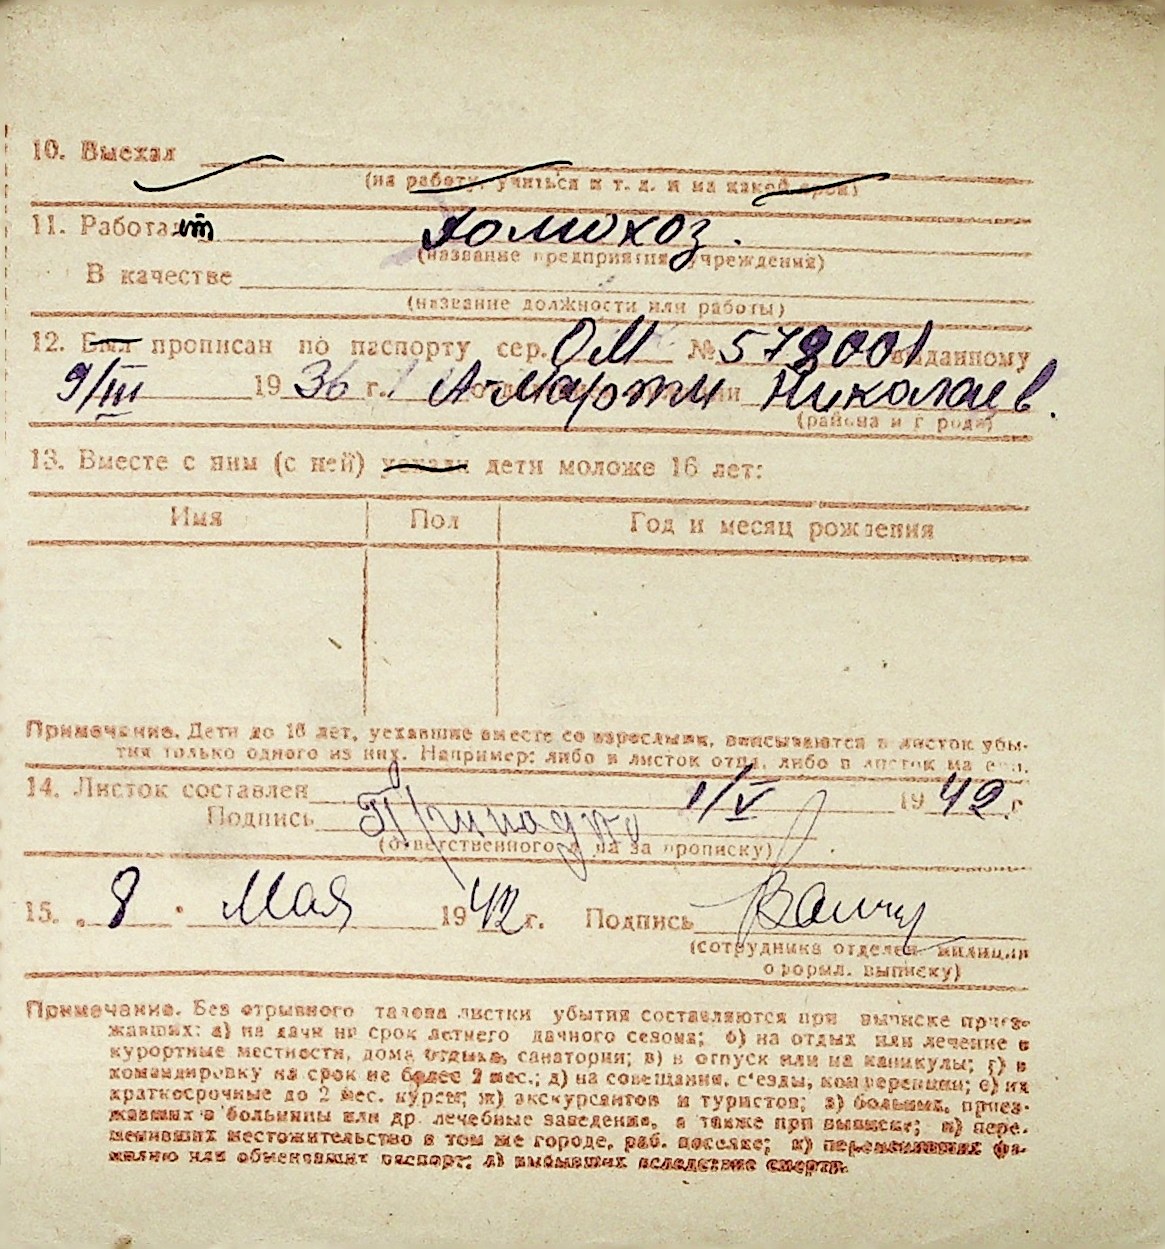 10. Выехал
(на работу, учиться и т. д. и на какой срок)
11. Работает Домохоз.
(название предприятия, учреждения)
В качестве
(название должности или работы)
12. Был прописан по паспорту сер. ОМ № 578001 выданному
9/III 1936 г. А-Марти Николаев.
(района и города)
13. Вместе с ним (с ней) уехали дети моложе 16 лет:
Имя Пол Год и месяц рождения
Примечание. Дети до 16 лет, уехавшие вместе со взрослыми, вписываются в листок убы-
тия только одного из них. Например: либо в листок отца, либо в листок матери.
14. Листок составлен 1/V 1942 г
Подпись
(ответственного лица за прописку)
15. „8" Мая 1942 г. Подпись
(сотрудника отделен. милиции
оформл. выписку)
Примечание. Без отрывного талона листки убытия составляются при выписке приез-
жавших: а) на дачи на срок летнего дачного сезона; б) на отдых или лечение в
курортные местности, дома отдыха, санатории; в) в отпуск или на каникулы; г) в
командировку на срок не более 2 мес.; д) на совещания, с'езды, конференции; е) на
краткосрочные до 2 мес. курсы; ж) экскурсантов и туристов; з) больных, приез-
жавших в больницы или др. лечебные заведение, а также при выписке; и) пере-
менивших местожительство в том же городе, раб. поселке; к) переменивших фа-
милию или обменявших паспорт; л) выбывших вследствие смерти.